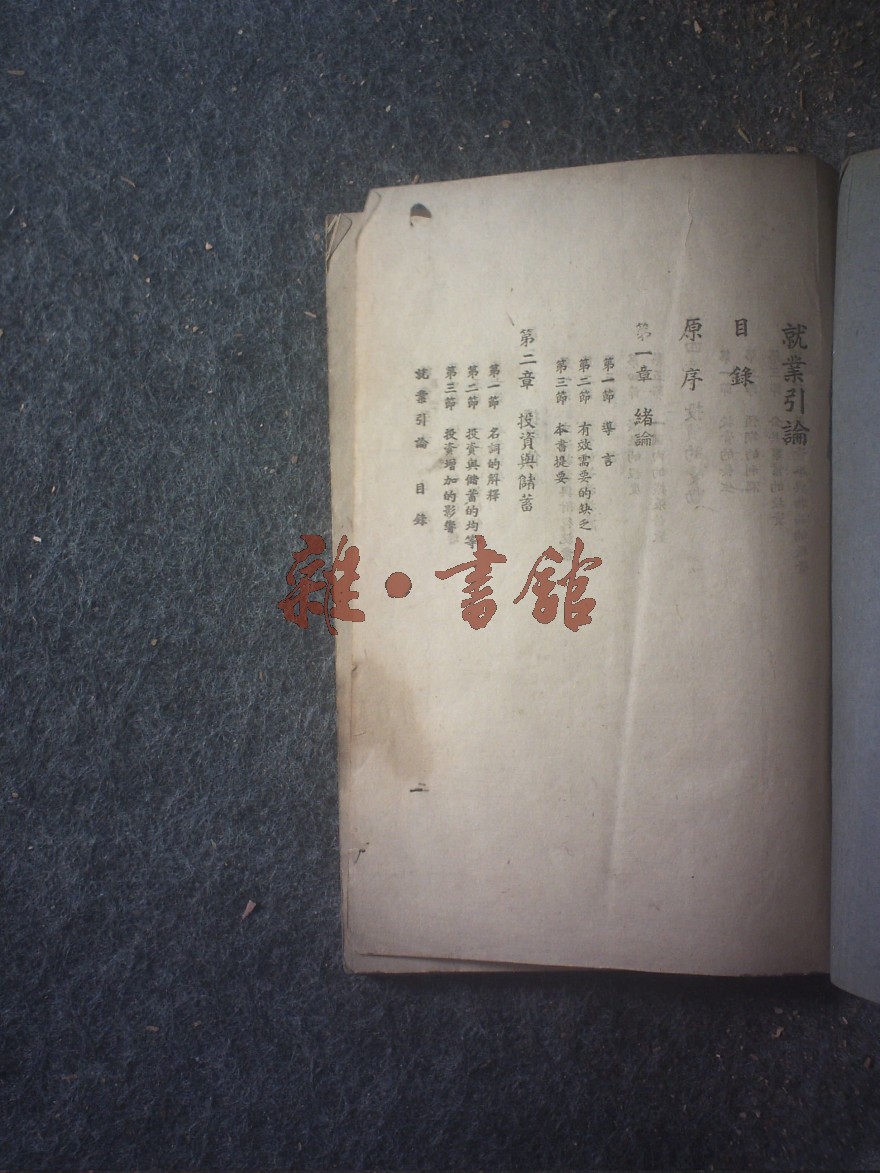 就業引論
目錄
原序
第一章 緒論
第一節 導言
第二節 有效需要的缺乏
第三節 本書提要
第二章 投資與儲蓄
第一節 名詞的解釋
第二節 投資與儲蓄的均等
第三節 投資增加的影響
就業引論 目錄
二
雜·書館